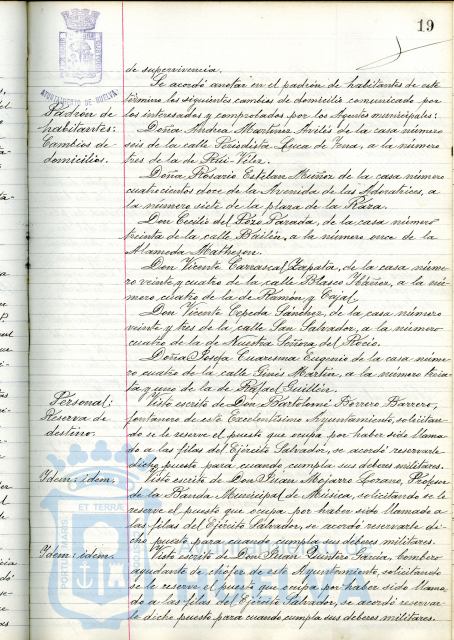 19
AYUNTAMIENTO DE HUELVA
de supervivencia.
Padrón de
habitantes:
Cambios de
domicilios.
Se acordó anotar en el padrón de habitantes de este
término los siguientes cambios de domicilio comunicado por
los interesados y comprobados por los Agentes municipales:
Doña Andrea Martínez Avilés de la casa número
seis de la calle Periodista Luca de Tena, a la número
tres de la de Rui-Vélez.
Doña Rosario Esteban Muñoz de la casa número
cuatrocientos doce de la Avenida de las Adoratrices, a
la número siete de la plaza de la Raza.
Don Cecilio del Pozo Parada, de la casa número
treinta de la calle Bailén, a la número once de la
Alameda Matheson.
Don Vicente Carrascal Zapata, de la casa núme-
ro veinte y cuatro de la calle Blasco Ibáñez, a la nú-
mero cuatro de la de Ramón y Cajal.
Don Vicente Cepeda Sánchez, de la casa número
veinte y tres de la calle San Salvador, a la número
cuatro de la de Nuestra Señora del Rocío.
Doña Josefa Cuaresma Eugenio de la casa núme-
ro cuatro de la calle Ginés Martín, a la número trein-
ta y uno de la de Rafael Guillén.
Personal:
Reserva de
destino.
Visto escrito de Don Bartolomé Borrero Barrero,
fontanero de este Excelentísimo Ayuntamiento, solicitan-
do se le reserve el puesto que ocupa por haber sido llama-
do a las filas del Ejército Salvador, se acordó reservarle
dicho puesto para cuando cumpla sus deberes militares.
Idem: idem.
Visto escrito de Don Juan Mojarro Lozano, Profesor
de la Banda Municipal de Música, solicitando se le
reserve el puesto que ocupa por haber sido llamado a
las filas del Ejército Salvador, se acordó reservarle di-
cho puesto para cuando cumpla sus deberes militares.
Idem: idem.
Visto escrito de Don Juan Quintero García, bombero
ayudante de chófer de este Ayuntamiento, solicitando
se le reserve el puesto que ocupa por haber sido llama-
do a las filas del Ejército Salvador, se acordó reservar-
le dicho puesto para cuando cumpla sus deberes militares.
PORTUS MARIS
ET TERRÆ